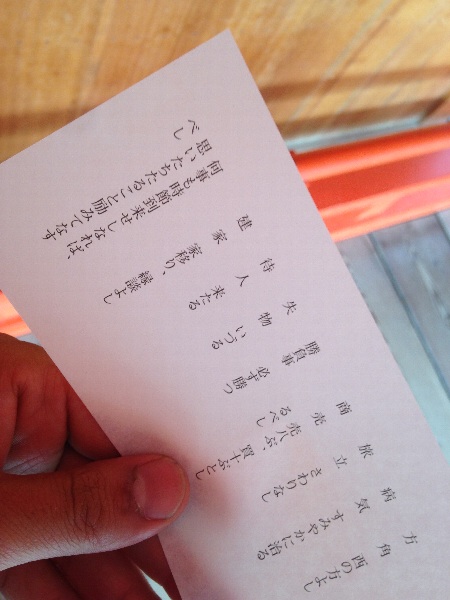 方角 西の方よし
病気 すみやかに治る
旅立 さわりなし
商売 売八ぶ、買十ぶとし
るべし
勝負事 必ず勝つ
失物 いづる
待人 来たる
建家 家移り、縁談よし
何事も時節到来せしなれば、
思いたちたること励みてなす
べし